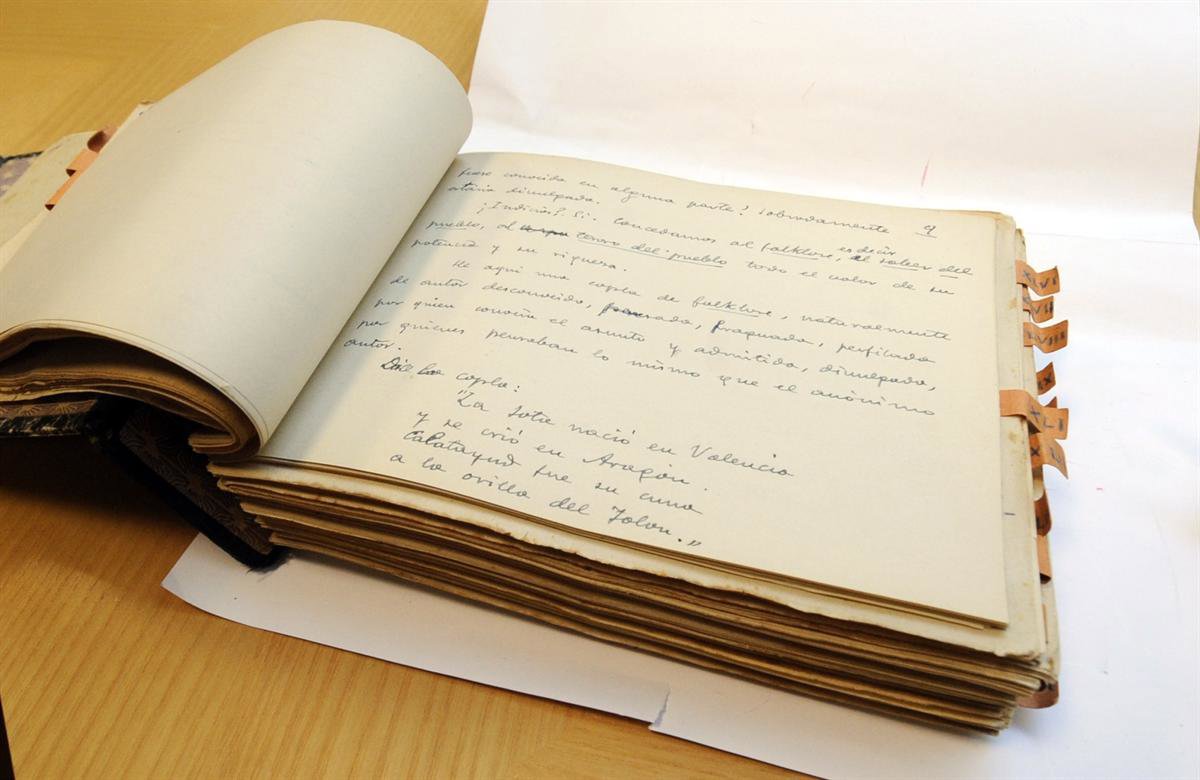 fuese conocida en alguna parte! sobradamente 9
estaria divulgada.
¿Indicios? Si. Concedamos al folklore, es decir al saber del
pueblo, al tesoro del pueblo todo el valor de su
potencia y su riqueza.
He aqui una copla de folklore, naturalmente
de autor desconocido, pensada, fraguada, perfilada
por quien conocia el asunto y admitida, divulgada,
por quienes pensaban lo mismo que el anónimo
autor.
Dice la copla:
"La Jota nació en Valencia
y se crió en Aragón.
Calatayud fue su cuna
a la orilla del Jalon."
XLVI
XVII
XVIII
XX
XLI
X